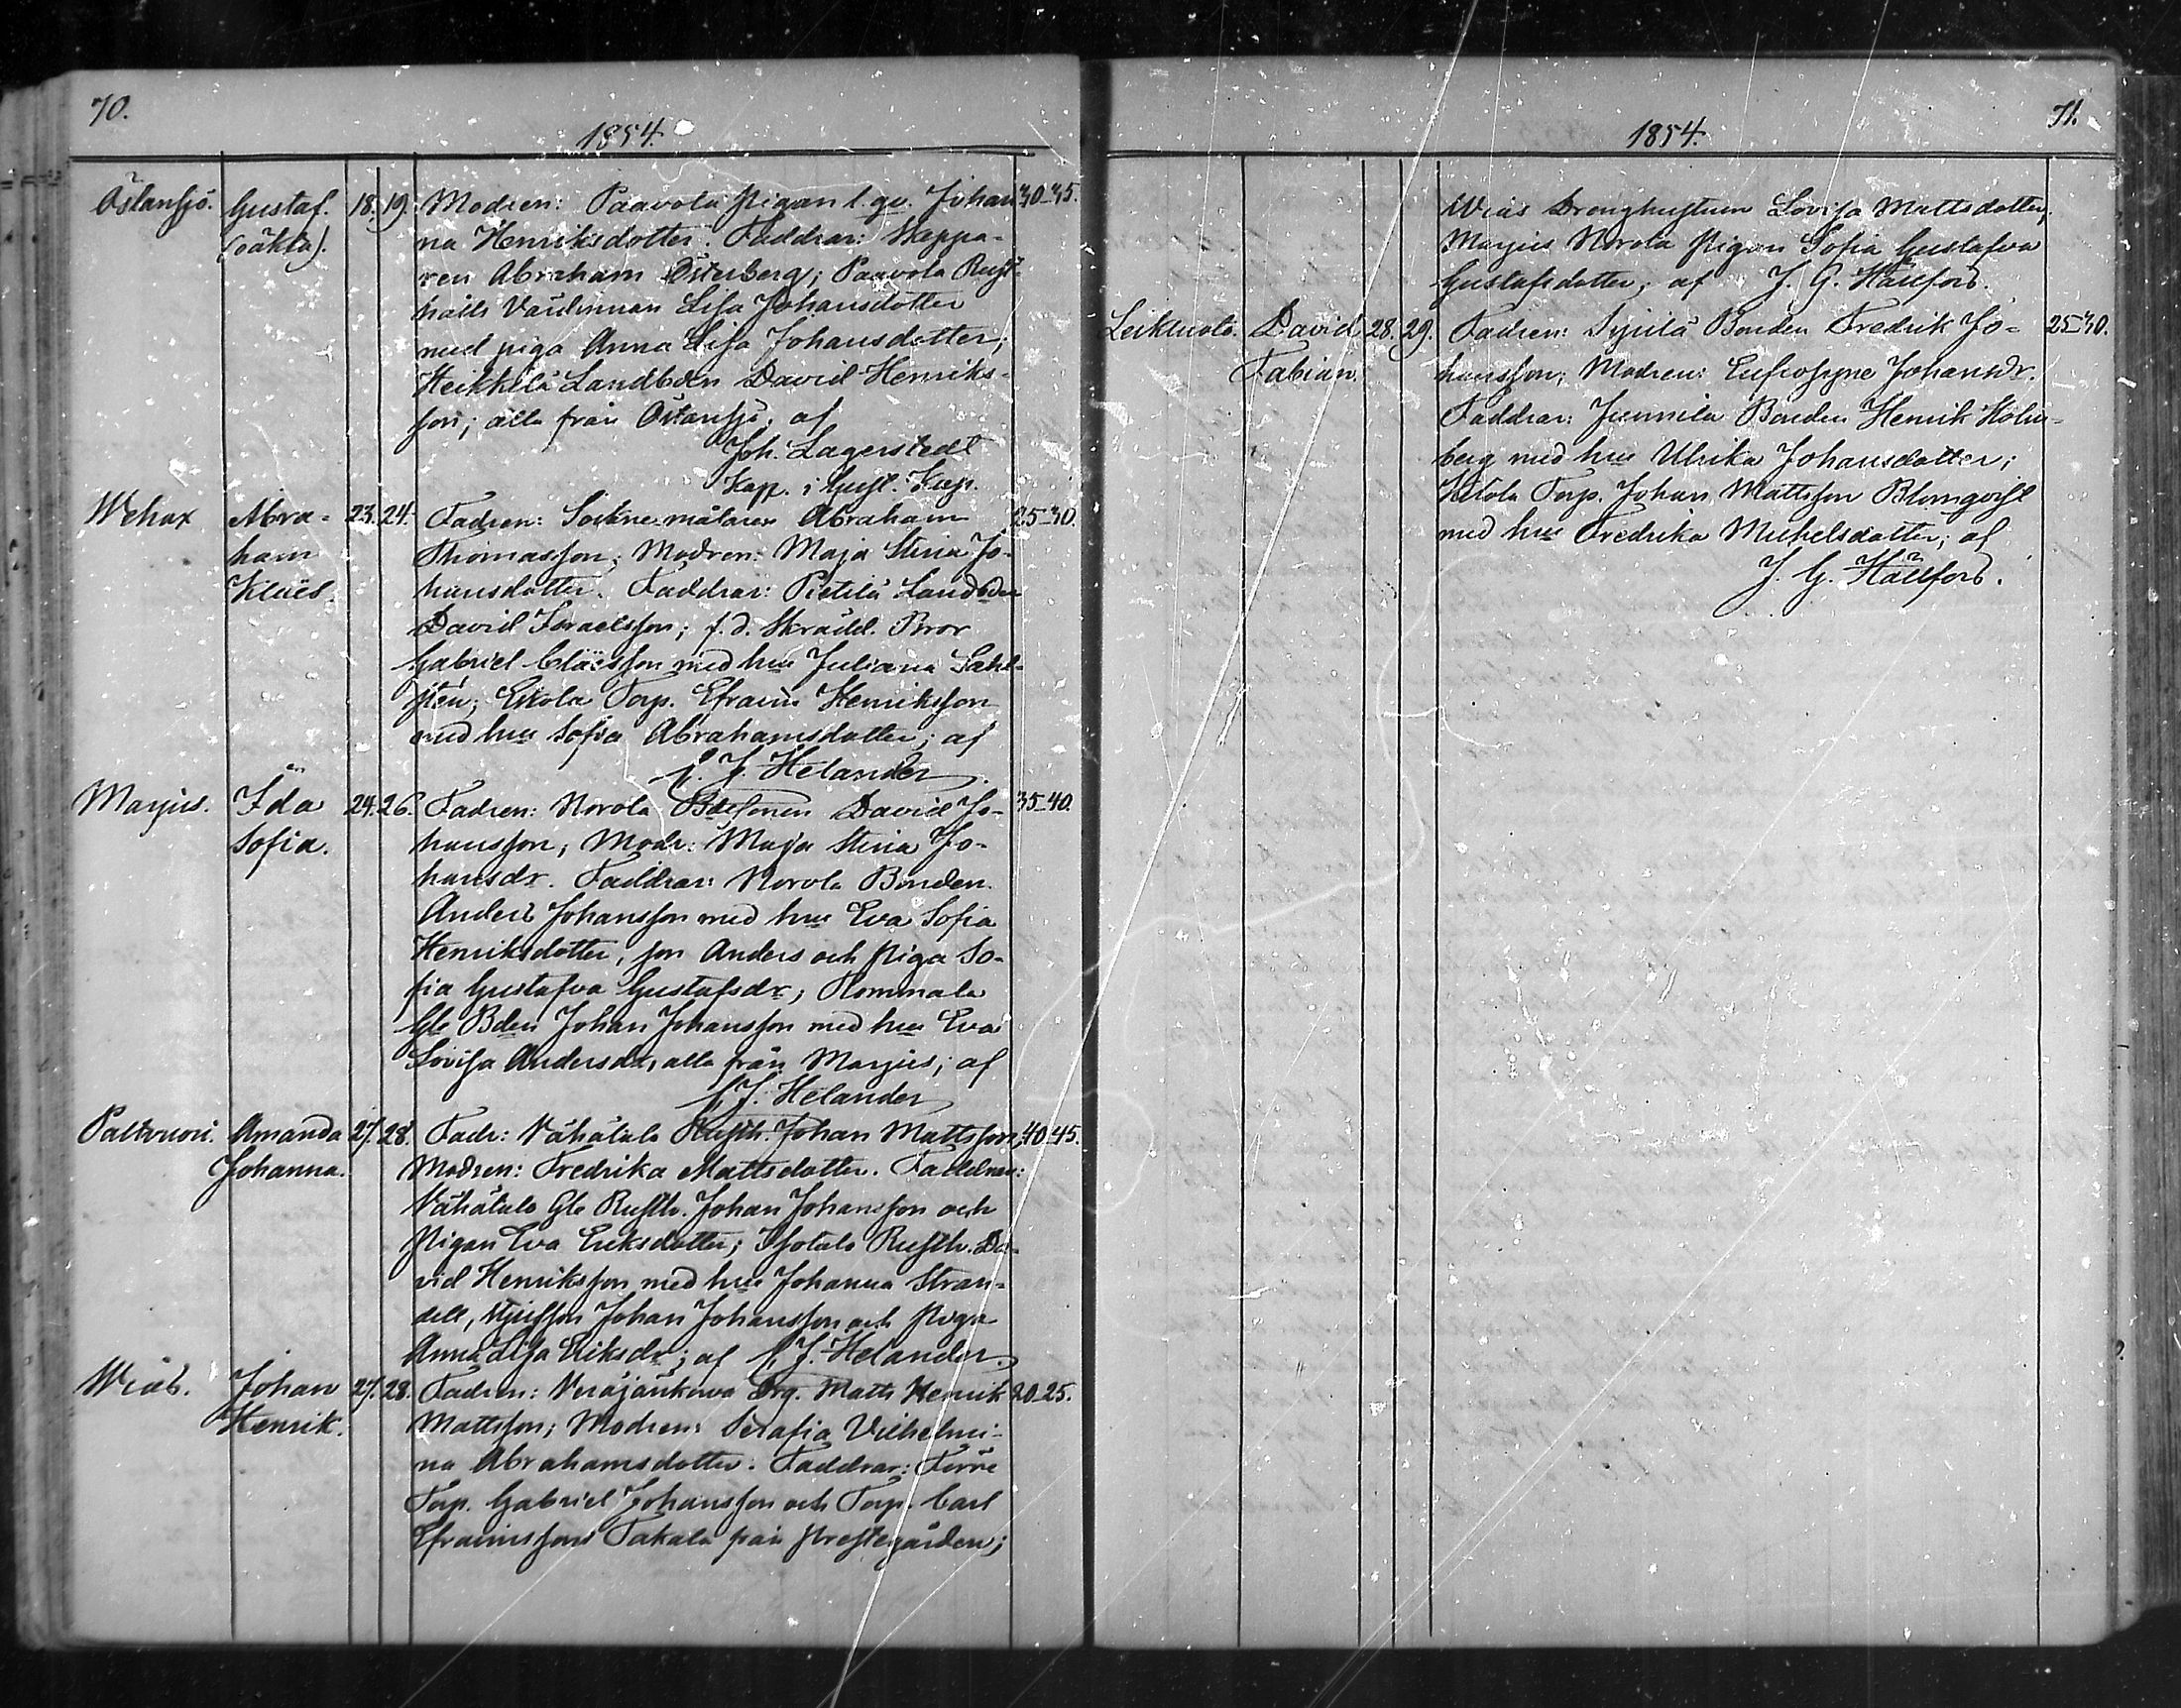 70.
1854.
Östansjö. Gustaf. 18. 19. Modren: Paavola Pigan l. qv. Johan- 30-35.
(oäkta). na Henriksdotter. Faddrar: Skeppa-
ren Abraham Österberg; Paavola Rust-
hålls Värdinnan Lisa Johansdotter
med piga Anna Lisa Johansdotter;
Heikkilä Landboen David Henriks-
son; alla från Östansjö; af
Joh. Lagerstedt
Kap. i Gust. Kap.
Wehax Abra- 23. 24. Fadren: Sockne målaren Abraham 25-30.
ham Thomasson; Modren: Maja Stina Jo-
Klaës. hansdotter. Faddrar: Pietilä Landboden
David Israelsson; f.d. Skrädd. Bror
Gabriel Claësson med hu Juliana Sahl-
stén; Eskola Torp. Efraim Henriksson
med hu Sofia Abrahamsdotter; af
C. J. Helander.
Marjus. Ida 24. 26. Fadren: Norola Bdesonen David Jo- 35-40.
Sofia. hansson; Modr: Maja Stina Jo-
hansdr. Faddrar: Norola Bonden
Anders Johansson med hu Eva Sofia
Henriksdotter, son Anders och Piga So-
fia Gustafva Gustafsdr; Rommala
Gle Bden Johan Johansson med hu Eva
Lovisa Andersdr, alla från Marjus; af
C J. Helander
Paltvuori. Amanda 27. 28. Fadr: Vähätalo Rusth. Johan Mattsson; 40-45.
Johanna. Modren: Fredrika Mattsdotter. Faddrar:
Vähätalo Gle Rusth. Johan Johansson och
Pigan Eva Eriksdotter; Isotalo Rusth. Da-
vid Henriksson med hu Johanna Stran-
dell, styfson Johan Johansson och Piga
Anna Lisa Eriksdr; af C. J. Helander.
Wiås. Johan 27. 28. Fadren: Veräjänkorva Drg. Matts Henrik 20-25.
Henrik. Mattsson; Modren: Serafia Vilhelmi-
na Abrahamsdotter. Faddrar: Förre
Torp. Gabriel Johansson och Torp. Carl
Efraimsson Takala från Prestegården;
71.
1854.
Wiås Drenghustrun Lovisa Mattsdotter,
Marjus Norola Pigan Sofia Gustafva
Gustafsdotter; af J. G. Hällfors.
Leikluoto. David 28. 29. Fadren: Sjytilä Bonden Fredrik Jo- 25-30.
Fabian. hansson; Modren: Eufrosyne Johansdr.
Faddrar: Junnila Bonden Henrik Holm-
berg med hu Ulrika Johansdotter;
Ketola Torp. Johan Mattsson Blomqvist
med hu Fredrika Michelsdotter; af
J. G. Hällfors.